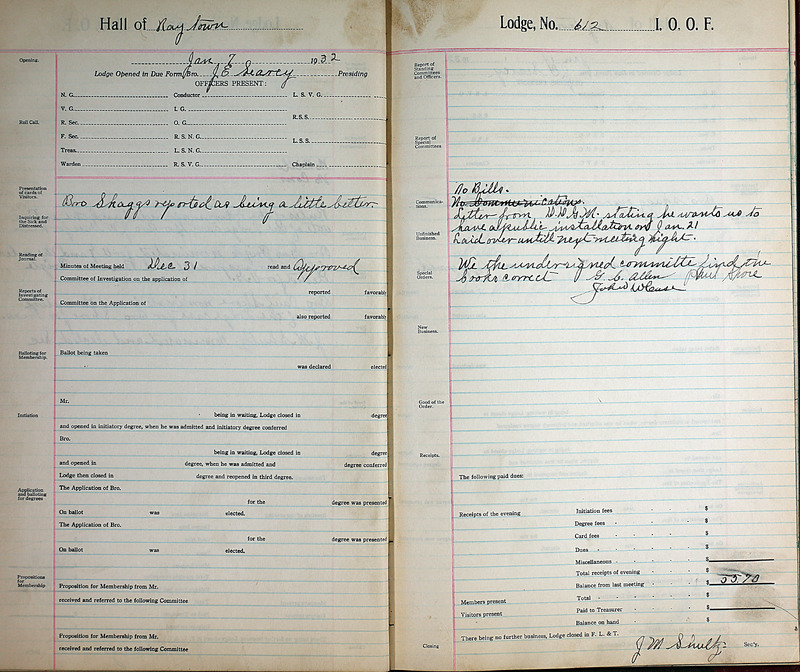 Hall of Raytown
Opening.
Jan 7 1932
Lodge Opened in Due Form, Bro. J E Searcy Presiding
OFFICERS PRESENT:
N. G. Conductor L. S. V. G.
V. G. I. G. R. S. S.
Roll Call. R. Sec. O. G.
F. Sec. R. S. N. G. L. S. S.
Treas. L. S. N. G.
Warden R. S. V. G. Chaplain
Presentation of cards of Visitors.
Bro Skaggs reported as being a little better
Inquiring for the Sick and Distressed.
Reading of Journal.
Minutes of Meeting held Dec 31 read and Approved
Committee of Investigation on the application of
Reports of Investigating Committee.
reported favorab
Committee on the Application of
also reported favorab
Balloting for Membership.
Ballot being taken
was declared electe
Mr.
Initiation
being in waiting, Lodge closed in degree
and opened in initiatory degree, when he was admitted and initiatory degree conferred
Bro.
being in waiting, Lodge closed in degree
and opened in degree, when he was admitted and degree conferred
Lodge then closed in degree and reopened in third degree.
Application and balloting for degrees
The Application of Bro.
for the degree was presented
On ballot was elected.
The Application of Bro.
for the degree was presented
On ballot was elected.
Propositions for Membership
Proposition for Membership from Mr.
received and referred to the following Committee
Proposition for Membership from Mr.
received and referred to the following Committee
Lodge, No. 612 I. O. O. F.
Report of Standing Committees and Officers.
Report of Special Committees
No Bills.
Communications.
No Communications.
Letter from D.D.G.M. stating he wants us to
have a public installation on Jan 21
Unfinished Business.
Laid over untill next meeting night.
Special Orders.
We the undersigned committe find the
books correct G. C. Allen Paul Shore
New Business.
Good of the Order.
Receipts.
The following paid dues:
Receipts of the evening Initiation fees $
Degree fees $
Card fees $
Dues $
Miscellaneous $
Total receipts of evening $
Balance from last meeting $ 55.70
Members present Total $
Visitors present Paid to Treasurer $
Balance on hand $
There being no further business, Lodge closed in F. L. & T.
Closing J M Shultz Sec'y.